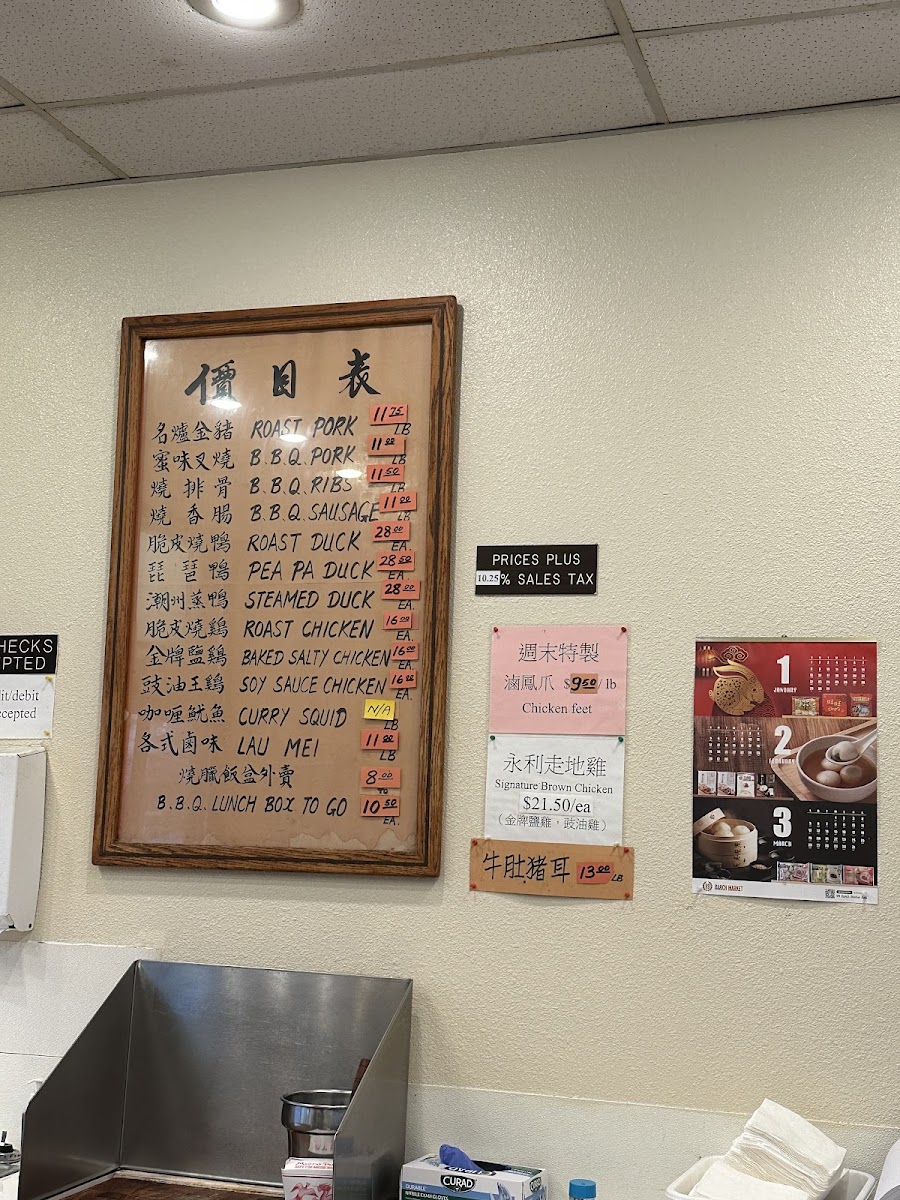 價目表
名爐金豬 ROAST PORK 11.75 LB
蜜味叉燒 B.B.Q. PORK 11.00 LB
燒排骨 B.B.Q. RIBS 11.50 LB
燒香腸 B.B.Q. SAUSAGE 11.00 LB
脆皮燒鴨 ROAST DUCK 28.00 EA.
琵琶鴨 PEA PA DUCK 28.50 EA.
潮州蒸鴨 STEAMED DUCK 28.00 EA.
脆皮燒鷄 ROAST CHICKEN 16.00 EA.
金牌鹽鷄 BAKED SALTY CHICKEN 16.00 EA
豉油王鷄 SOY SAUCE CHICKEN 16.00 EA.
咖喱魷魚 CURRY SQUID N/A LB
各式卤味 LAU MEI 11.00 LB
燒臘飯盆外賣 8.00 TO
B.B.Q. LUNCH BOX TO GO 10.50 EA.
HECKS
PTED
it/debit
cepted
PRICES PLUS
10.25% SALES TAX
週末特製
滷鳳爪 $9.50/ lb
Chicken feet
永利走地雞
Signature Brown Chicken
$21.50/ea
（金牌鹽雞，豉油雞）
牛肚豬耳 13.00 LB
1
JANUARY
2
FEBRUARY
3
MARCH
RANCH MARKET
CURAD